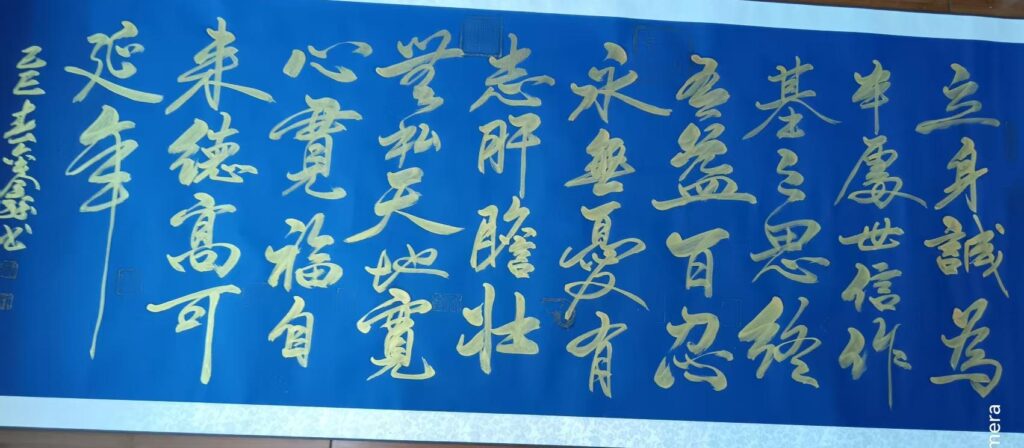 立身誠為
本處世信作
基三思終
有益百忍
永無憂有
志肝膽壯
無私天地寬
心寬福自
来德高可
延年
乙巳春
mera